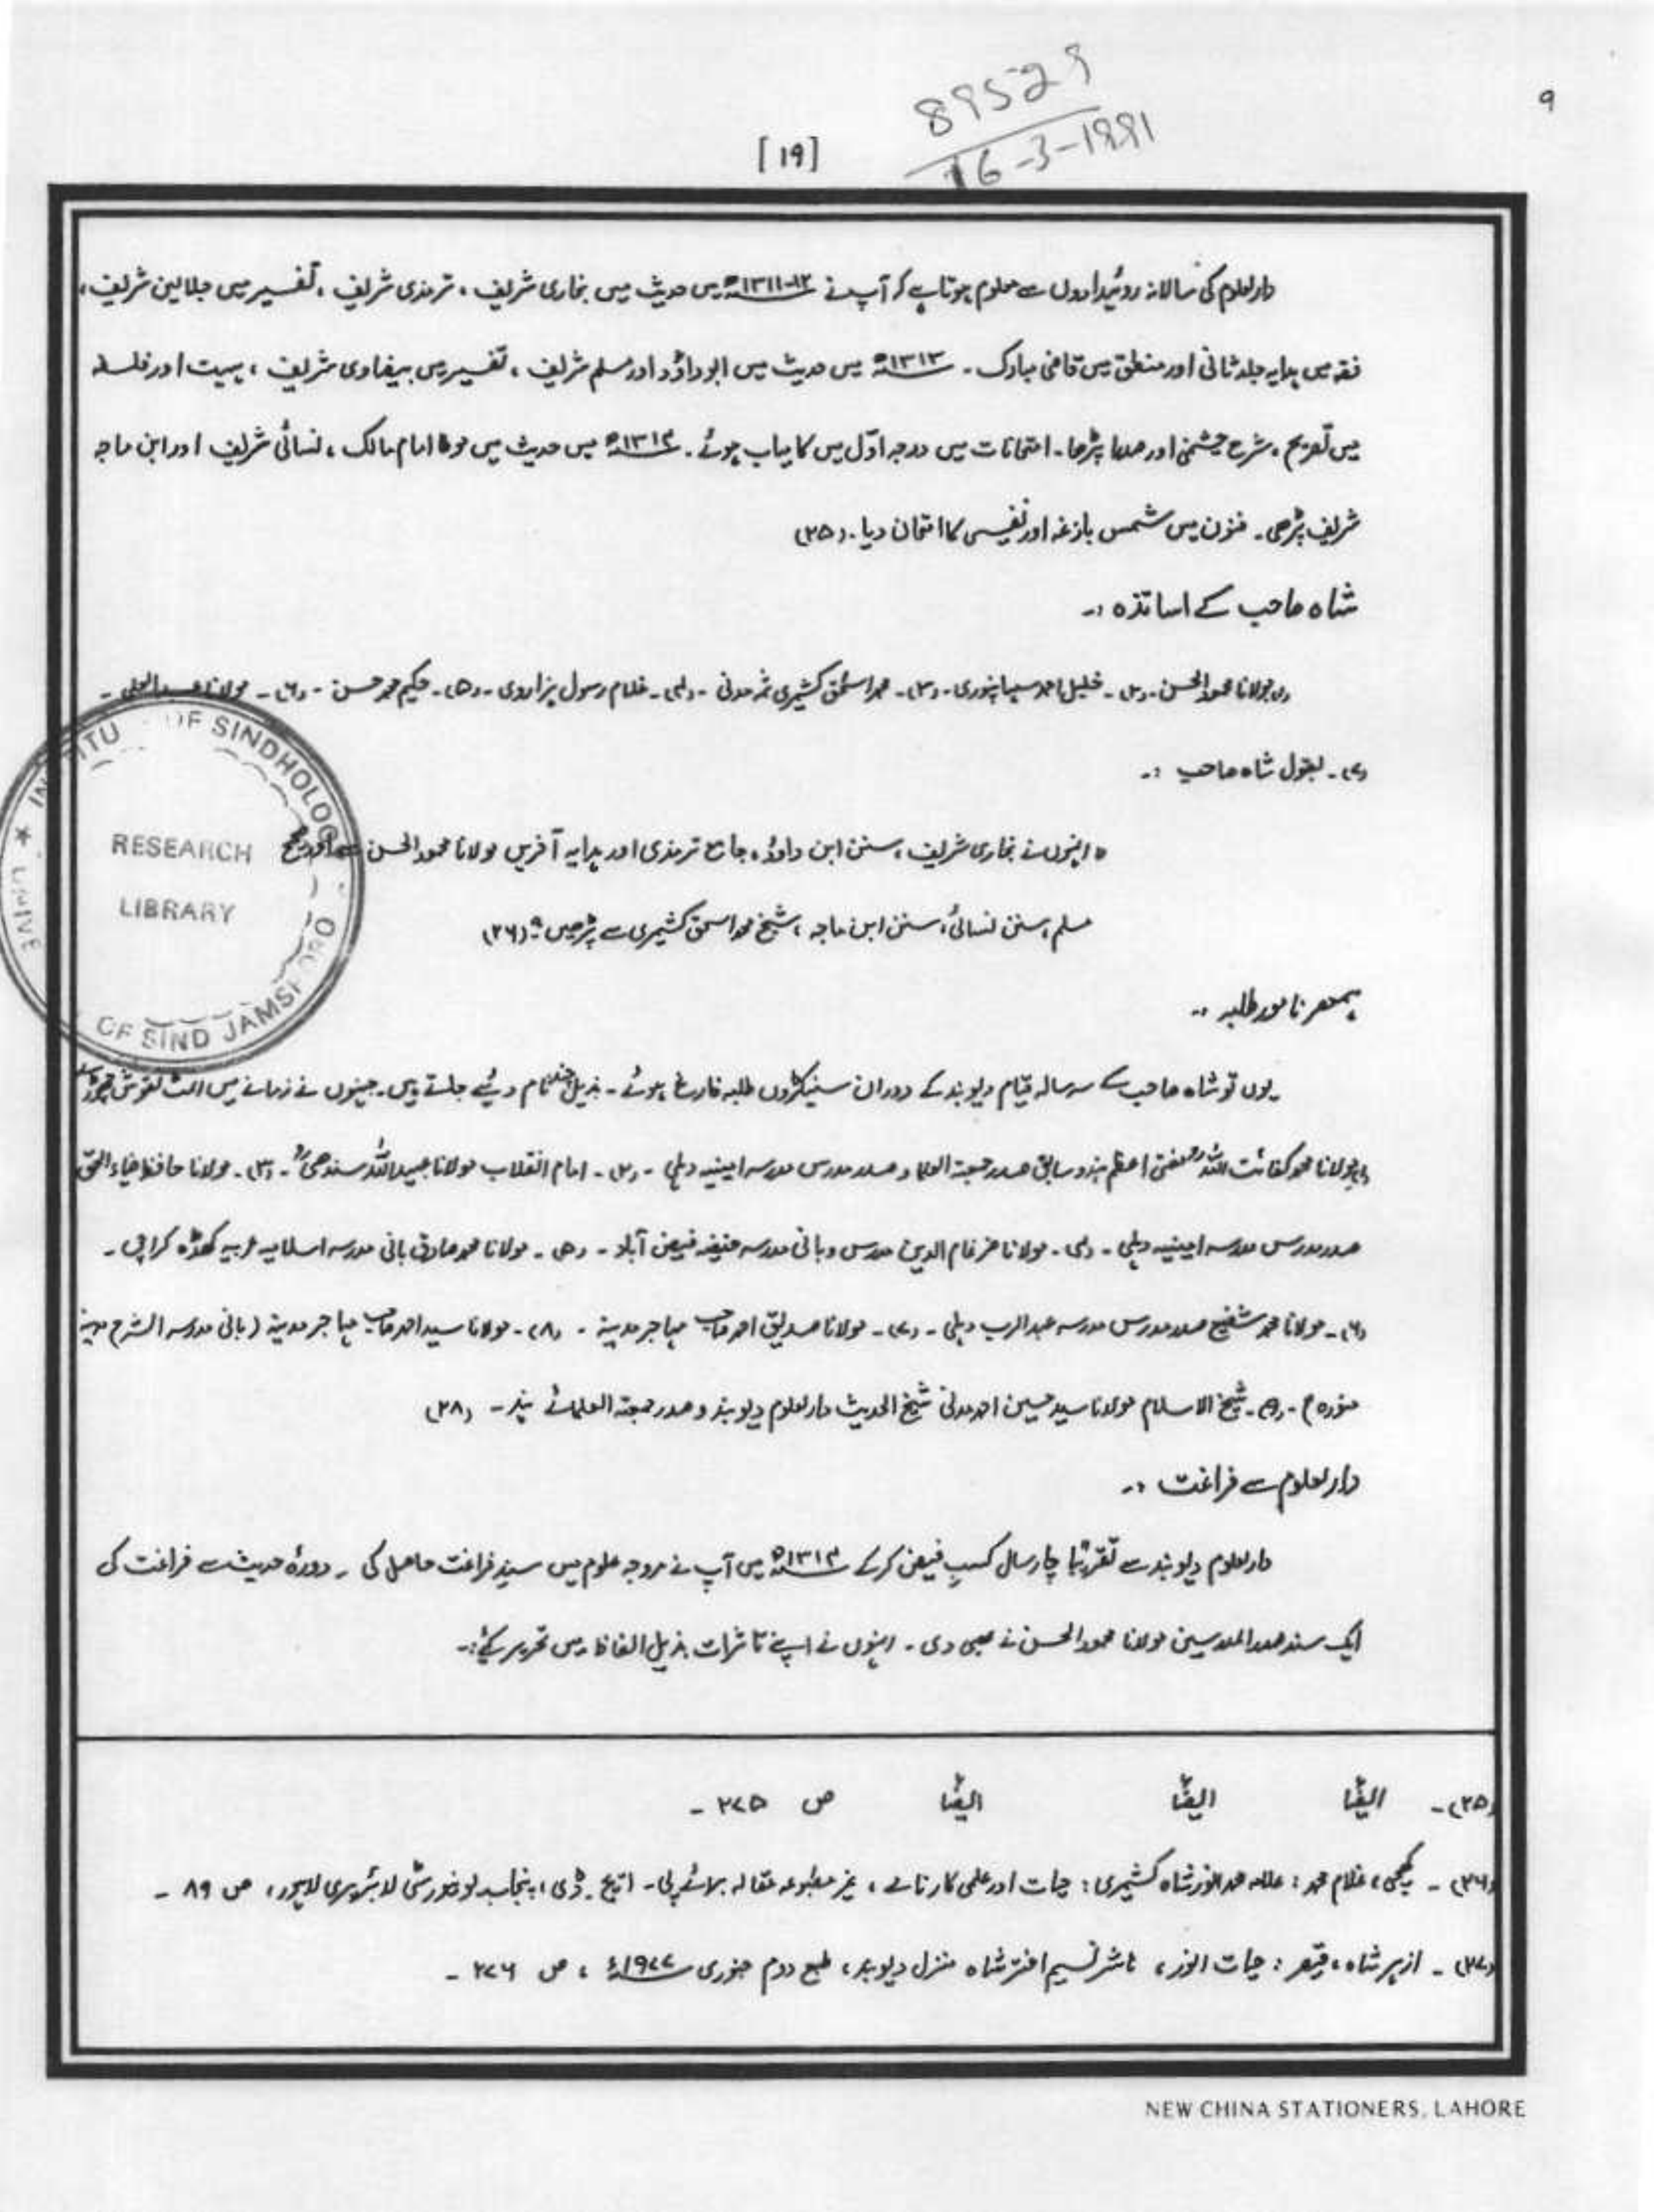 89529
16-3-1991
۹
[ ۱۹ ]
دارالعلوم کی سالانہ روئیدادوں سے معلوم ہوتا ہے کہ آپ نے ۱۲-۱۳۱۱ھ میں حدیث میں بخاری شریف ، ترمذی شریف ، تفسیر میں جلالین شریف ،
فقہ میں ہدایہ جلد ثانی اور منطق میں قاضی مبارک ۔ ۱۳۱۳ھ میں حدیث میں ابوداؤد اور مسلم شریف ، تفسیر میں بیضاوی شریف ، ہیت اور فلسفہ
میں تصریح ، شرح چشمنی اور صدرا پڑھا ۔ امتحانات میں درجہ اوّل میں کامیاب ہوئے ۔ ۱۳۱۴ھ میں حدیث میں موطا امام مالک ، نسائی شریف اور ابن ماجہ
شریف پڑھی ۔ فنون میں شمس بازغہ اور نفیسی کا امتحان دیا ۔ (۲۵)
شاہ صاحب کے اساتذہ :۔
(۱) مولانا محمود الحسن ۔ (۲) ۔ خلیل احمد سہارنپوری ۔ (۳) ۔ محمد اسحٰق کشمیری ثم مدنی ۔ (۴) ۔ غلام رسول ہزاروی ۔ (۵) ۔ حکیم محمد حسن ۔ (۶) ۔ مولانا عبدالعلی ۔
(۷) ۔ بقول شاہ صاحب :۔
" انہوں نے بخاری شریف ، سنن ابن داوٗد ، جامع ترمذی اور ہدایہ آخرین مولانا محمود الحسن سے اور صحیح
مسلم ، سنن نسائی ، سنن ابن ماجہ ، شیخ محمد اسحٰق کشمیری سے پڑھیں " (۲۶)
ہمعصر نامور طلبہ :۔
یوں تو شاہ صاحب کے سہ سالہ قیام دیوبند کے دوران سینکڑوں طلبہ فارغ ہوئے ۔ بذیل چند نام دیئے جاتے ہیں ۔ جنہوں نے زمانے میں انمٹ نقوش چھوڑے
(۱) مولانا محمد کفائت اللہؒ مفتی اعظم ہند و سابق صدر جمعیۃ العلما و صدر مدرس مدرسہ امینیہ دہلی ۔ (۲) ۔ امام انقلاب مولانا عبیداللہ سندھیؒ ۔ (۳) ۔ مولانا حافظ ضیاء الحق
صدر مدرس مدرسہ امینیہ دہلی ۔ (۴) ۔ مولانا ضرغام الدین مدرس و بانی مدرسہ حنیفہ فیض آباد ۔ (۵) ۔ مولانا محمد صادق بانی مدرسہ اسلامیہ عربیہ کھڈہ کراچی ۔
(۶) ۔ مولانا محمد شفیع صدر مدرس مدرسہ عبدالرب دہلی ۔ (۷) ۔ مولانا صدیق احمد صاحب مہاجر مدینہ ۔ (۸) ۔ مولانا سید احمد صاحب مہاجر مدینہ (بانی مدرسہ الشرع مدینہ
منورہ) ۔ (۹) ۔ شیخ الاسلام مولانا سید حسین احمد مدنی شیخ الحدیث دارالعلوم دیوبند و صدر جمعیتہ العلمائے ہند ۔ (۲۸)
دارالعلوم سے فراغت :۔
دارالعلوم دیوبند سے تقریباً چار سال کسبِ فیض کر کے ۱۳۱۴ھ میں آپ نے مروجہ علوم میں سندِ فراغت حاصل کی ۔ دورۂ حدیث سے فراغت کی
ایک سند صدر المدرسین مولانا محمود الحسن نے بھی دی ۔ انہوں نے اپنے تاثرات بذیل الفاظ میں تحریر کئے :۔
INSTITU OF SINDHOLOG
RESEARCH
LIBRARY
UNIVE OF SIND JAMSHORO
(۲۵) ۔ ایضاً ایضاً ایضاً ص ۲۷۵ ۔
(۲۶) ۔ غلام محمد : علامہ محمد انور شاہ کشمیری : حیات اور علمی کارنامے ، غیر مطبوعہ مقالہ برائے پی ۔ ایچ ۔ ڈی ، پنجاب یونیورسٹی لائبریری لاہور ، ص ۸۹ ۔
(۲۷) ۔ ازہر شاہ ، قیصر : حیات انور ، ناشر نسیم اختر شاہ منزل دیوبند ، طبع دوم جنوری ۱۹۷۷ء ، ص ۲۷۶ ۔
NEW CHINA STATIONERS, LAHORE